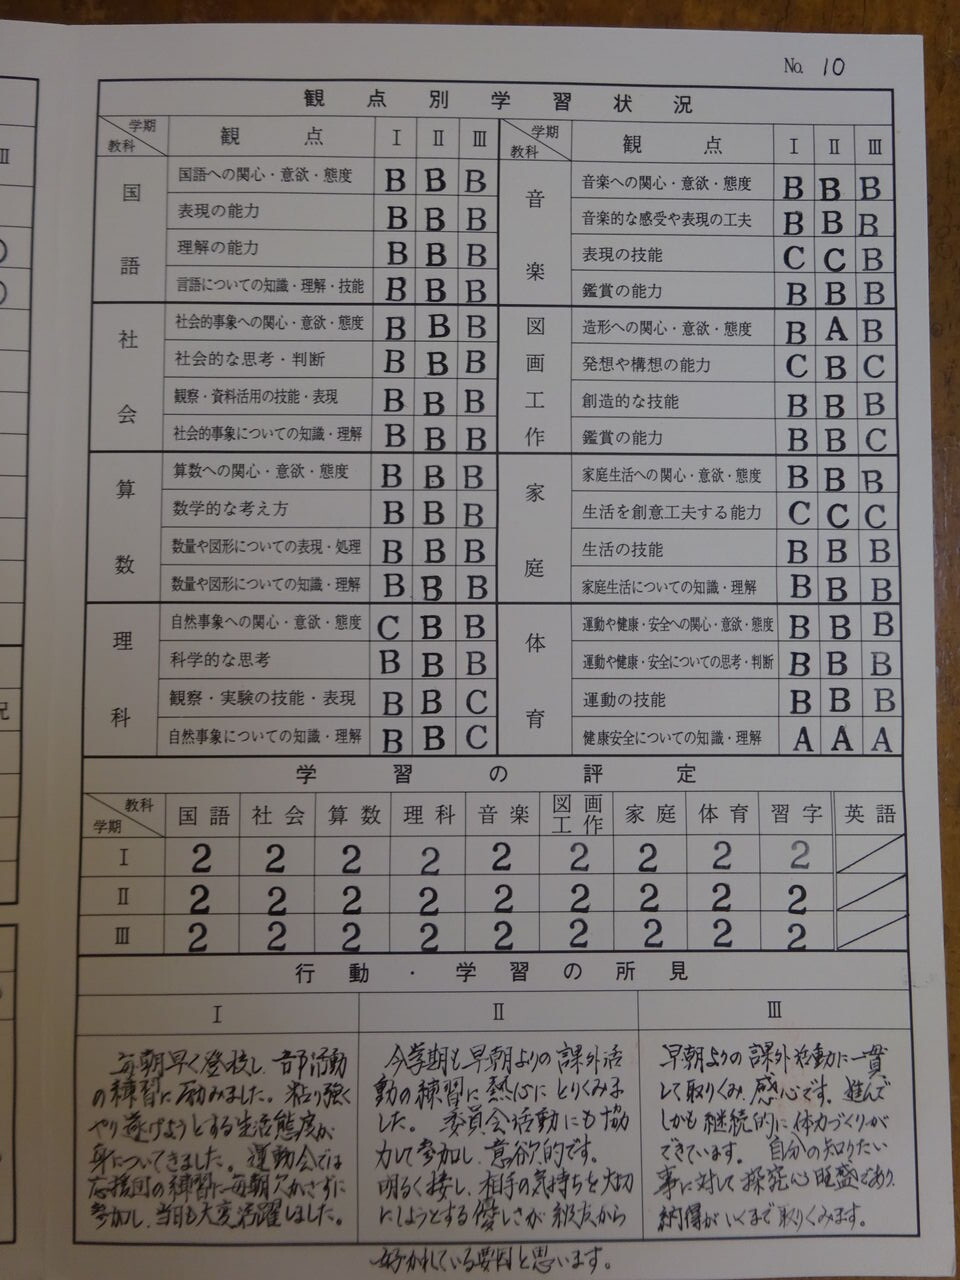 No. 10
観点別学習状況
学期 教科 観点 Ⅰ Ⅱ Ⅲ
国語
国語への関心・意欲・態度 B B B
表現の能力 B B B
理解の能力 B B B
言語についての知識・理解・技能 B B B
社会
社会的事象への関心・意欲・態度 B B B
社会的な思考・判断 B B B
観察・資料活用の技能・表現 B B B
社会的事象についての知識・理解 B B B
算数
算数への関心・意欲・態度 B B B
数学的な考え方 B B B
数量や図形についての表現・処理 B B B
数量や図形についての知識・理解 B B B
理科
自然事象への関心・意欲・態度 C B B
科学的な思考 B B B
観察・実験の技能・表現 B B C
自然事象についての知識・理解 B B C
学期 教科 観点 Ⅰ Ⅱ Ⅲ
音楽
音楽への関心・意欲・態度 B B B
音楽的な感受や表現の工夫 B B B
表現の技能 C C B
鑑賞の能力 B B B
図画工作
造形への関心・意欲・態度 B A B
発想や構想の能力 C B C
創造的な技能 B B B
鑑賞の能力 B B C
家庭
家庭生活への関心・意欲・態度 B B B
生活を創意工夫する能力 C C C
生活の技能 B B B
家庭生活についての知識・理解 B B B
体育
運動や健康・安全への関心・意欲・態度 B B B
運動や健康・安全についての思考・判断 B B B
運動の技能 B B B
健康安全についての知識・理解 A A A
学習の評定
教科 学期 国語 社会 算数 理科 音楽 図画工作 家庭 体育 習字 英語
Ⅰ 2 2 2 2 2 2 2 2 2
Ⅱ 2 2 2 2 2 2 2 2 2
Ⅲ 2 2 2 2 2 2 2 2 2
行動・学習の所見
Ⅰ
毎朝早く登校し、部活動
の練習に励みました。粘り強く
やり遂げようとする生活態度が
身についてきました。運動会では
応援団の練習に毎朝欠かさずに
参加し、当日も大変活躍しました。
Ⅱ
今学期も早朝よりの課外活
動の練習に熱心にとりくみま
した。委員会活動にも協
力して参加し、意欲的です。
明るく接し、相手の気持ちを大切
にしようとする優しさが級友から
好かれている要因と思います。
Ⅲ
早朝よりの課外活動に一貫
して取りくみ、感心です。進んで
しかも継続的に体力づくりが
できています。自分の知りたい
事に対して探究心旺盛であり、
納得がいくまで取りくみます。